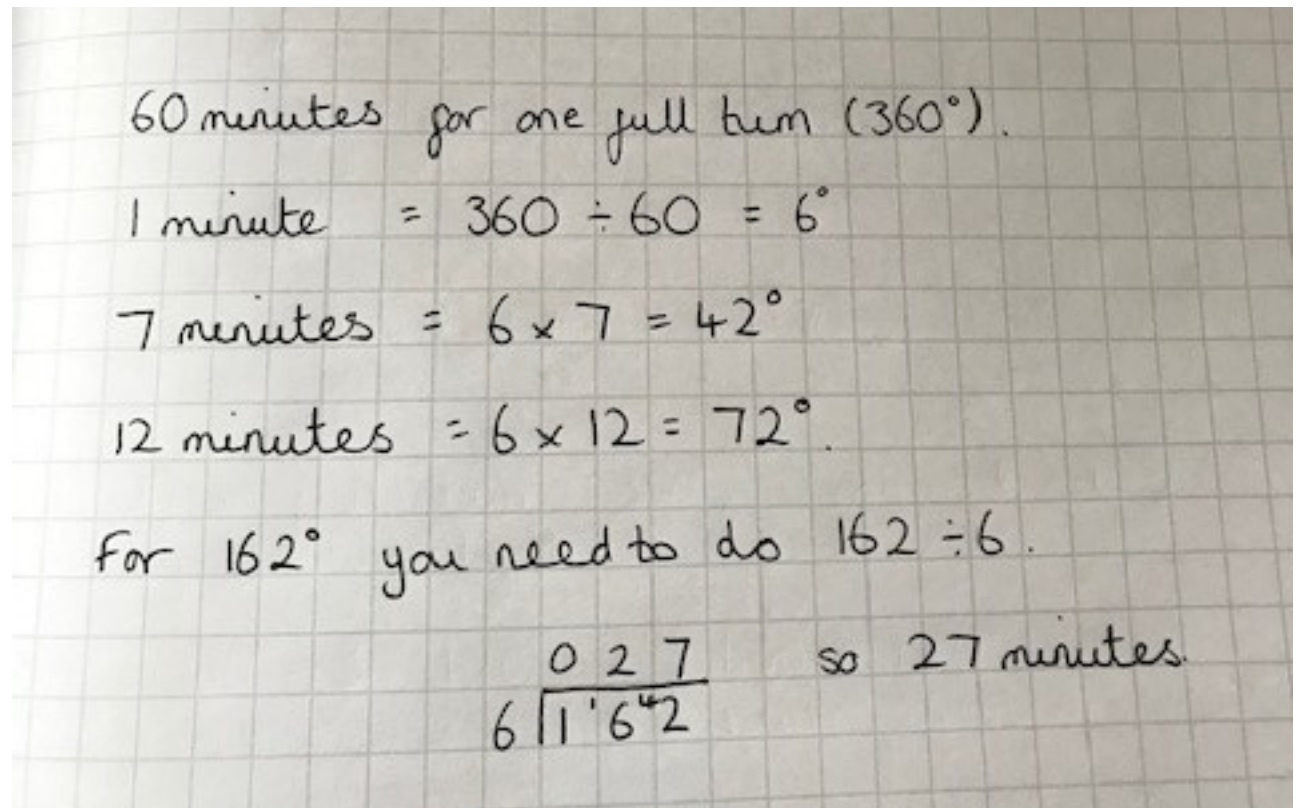 60 minutes for one full turn (360°).
1 minute = 360 ÷ 60 = 6°
7 minutes = 6 × 7 = 42°
12 minutes = 6 × 12 = 72°.
For 162° you need to do 162 ÷ 6.
0 2 7 so 27 minutes.
6 1 ¹6 ⁴2